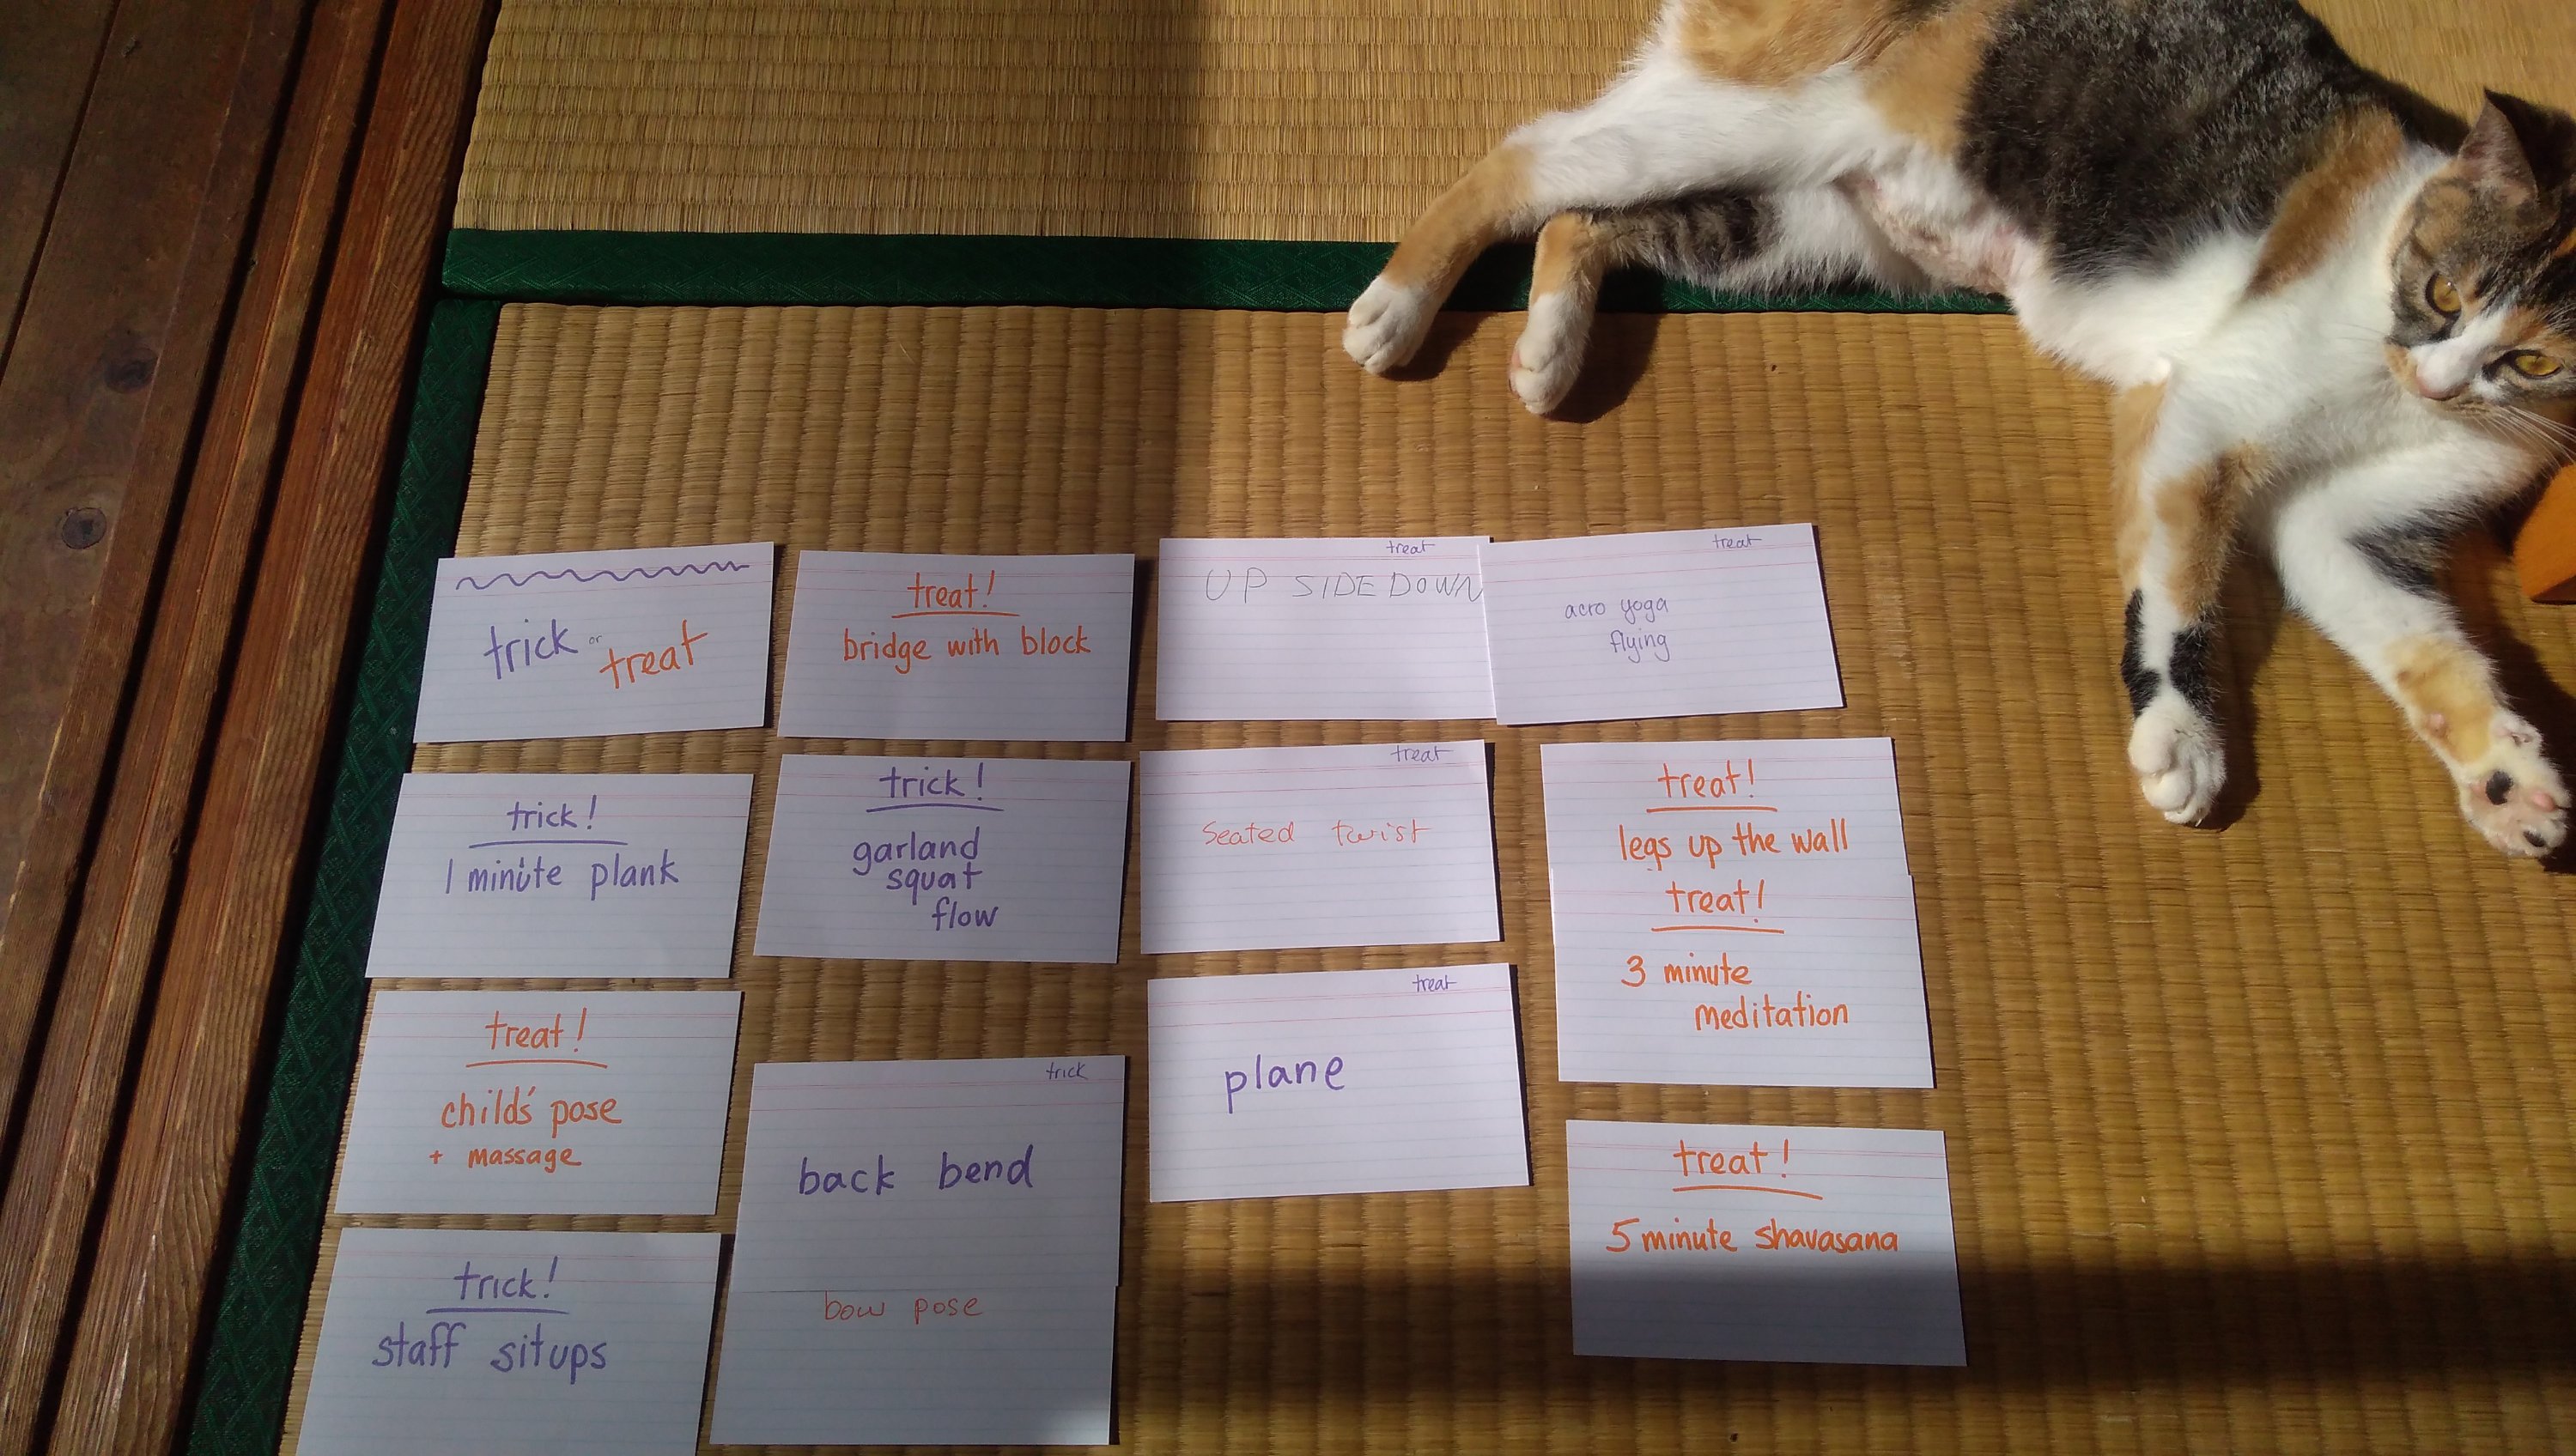 trick or treat
trick!
1 minute plank
treat!
childs' pose
+ massage
trick!
staff situps
treat!
bridge with block
trick!
garland
squat
flow
trick
back bend
bow pose
treat
UP SIDE DOWN
treat
seated twist
treat
plane
treat
acro yoga
flying
treat!
legs up the wall
treat!
3 minute
meditation
treat!
5 minute shavasana